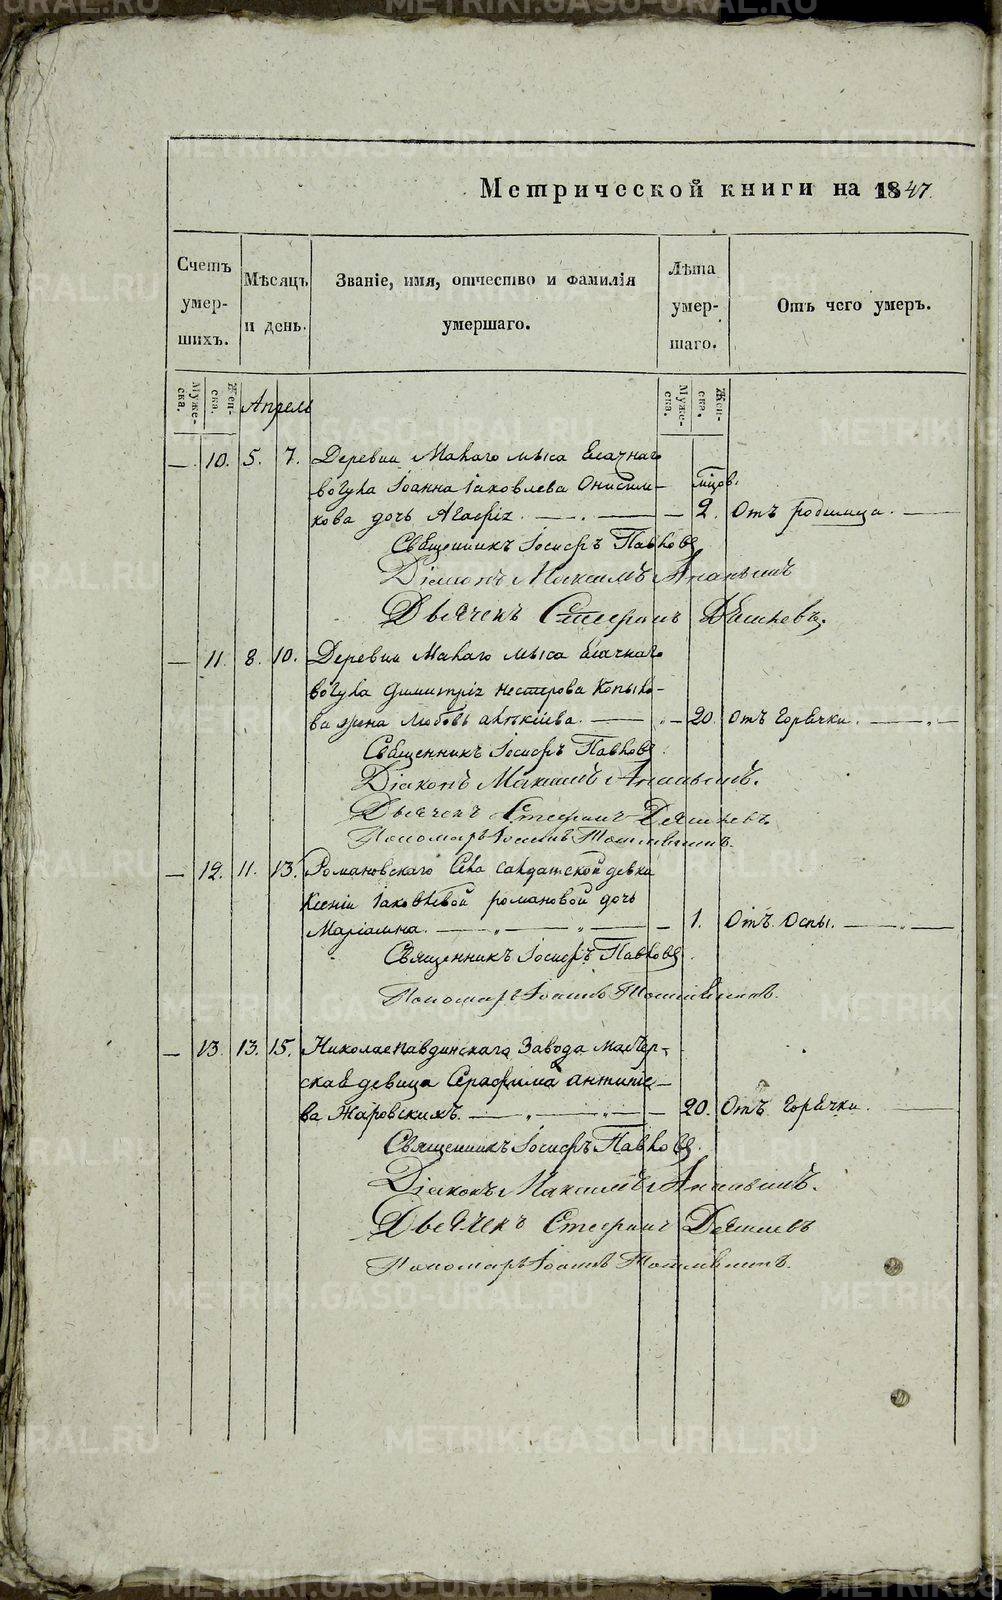 Метрической книги на 1847
Счетъ умер- шихъ.
Мѣсяцъ и день.
Званіе, имя, отчество и фамилія умершаго.
Лѣта умер- шаго.
Отъ чего умеръ.
Муже- ска.
Жен- ска.
Апрель
Муже- ска.
Жен- ска.
— 10. 5. 7. Деревни Малаго мыса Ясачнаго
вогула Іоанна Іаковлева Онисим- мцов.
кова дочь Агафія. — 2. Отъ родимца.
Священникъ Іосифъ Павловъ
Діаконъ Максимъ Ананьинъ
Дьячекъ Стефанъ
— 11. 8. 10. Деревни Малаго мыса Ясачнаго
вогула Димитрія Нестерова Копыло-
ва жена Любовь — 20. Отъ Горячки.
Священникъ Іосифъ Павловъ
Діаконъ Максимъ Ананьинъ.
Дьячекъ Стефанъ
Пономарь Іоаннъ
— 12. 11. 13. Романовскаго Села Салдатской девки
Ксеніи Іаковлевой Романовой дочь
Маріамна. — 1. Отъ Оспы.
Священникъ Іосифъ Павловъ.
Пономарь Іоаннъ
— 13. 13. 15. Николаепавдинскаго Завода мастер-
ская девица Серафима Антипе-
ва Жаровскихъ. — 20. Отъ Горячки.
Священникъ Іосифъ Павловъ.
Діаконъ Максимъ Ананьинъ.
Дьячекъ Стефанъ
Пономарь Іоаннъ
METRIKI.GASO-URAL.RU